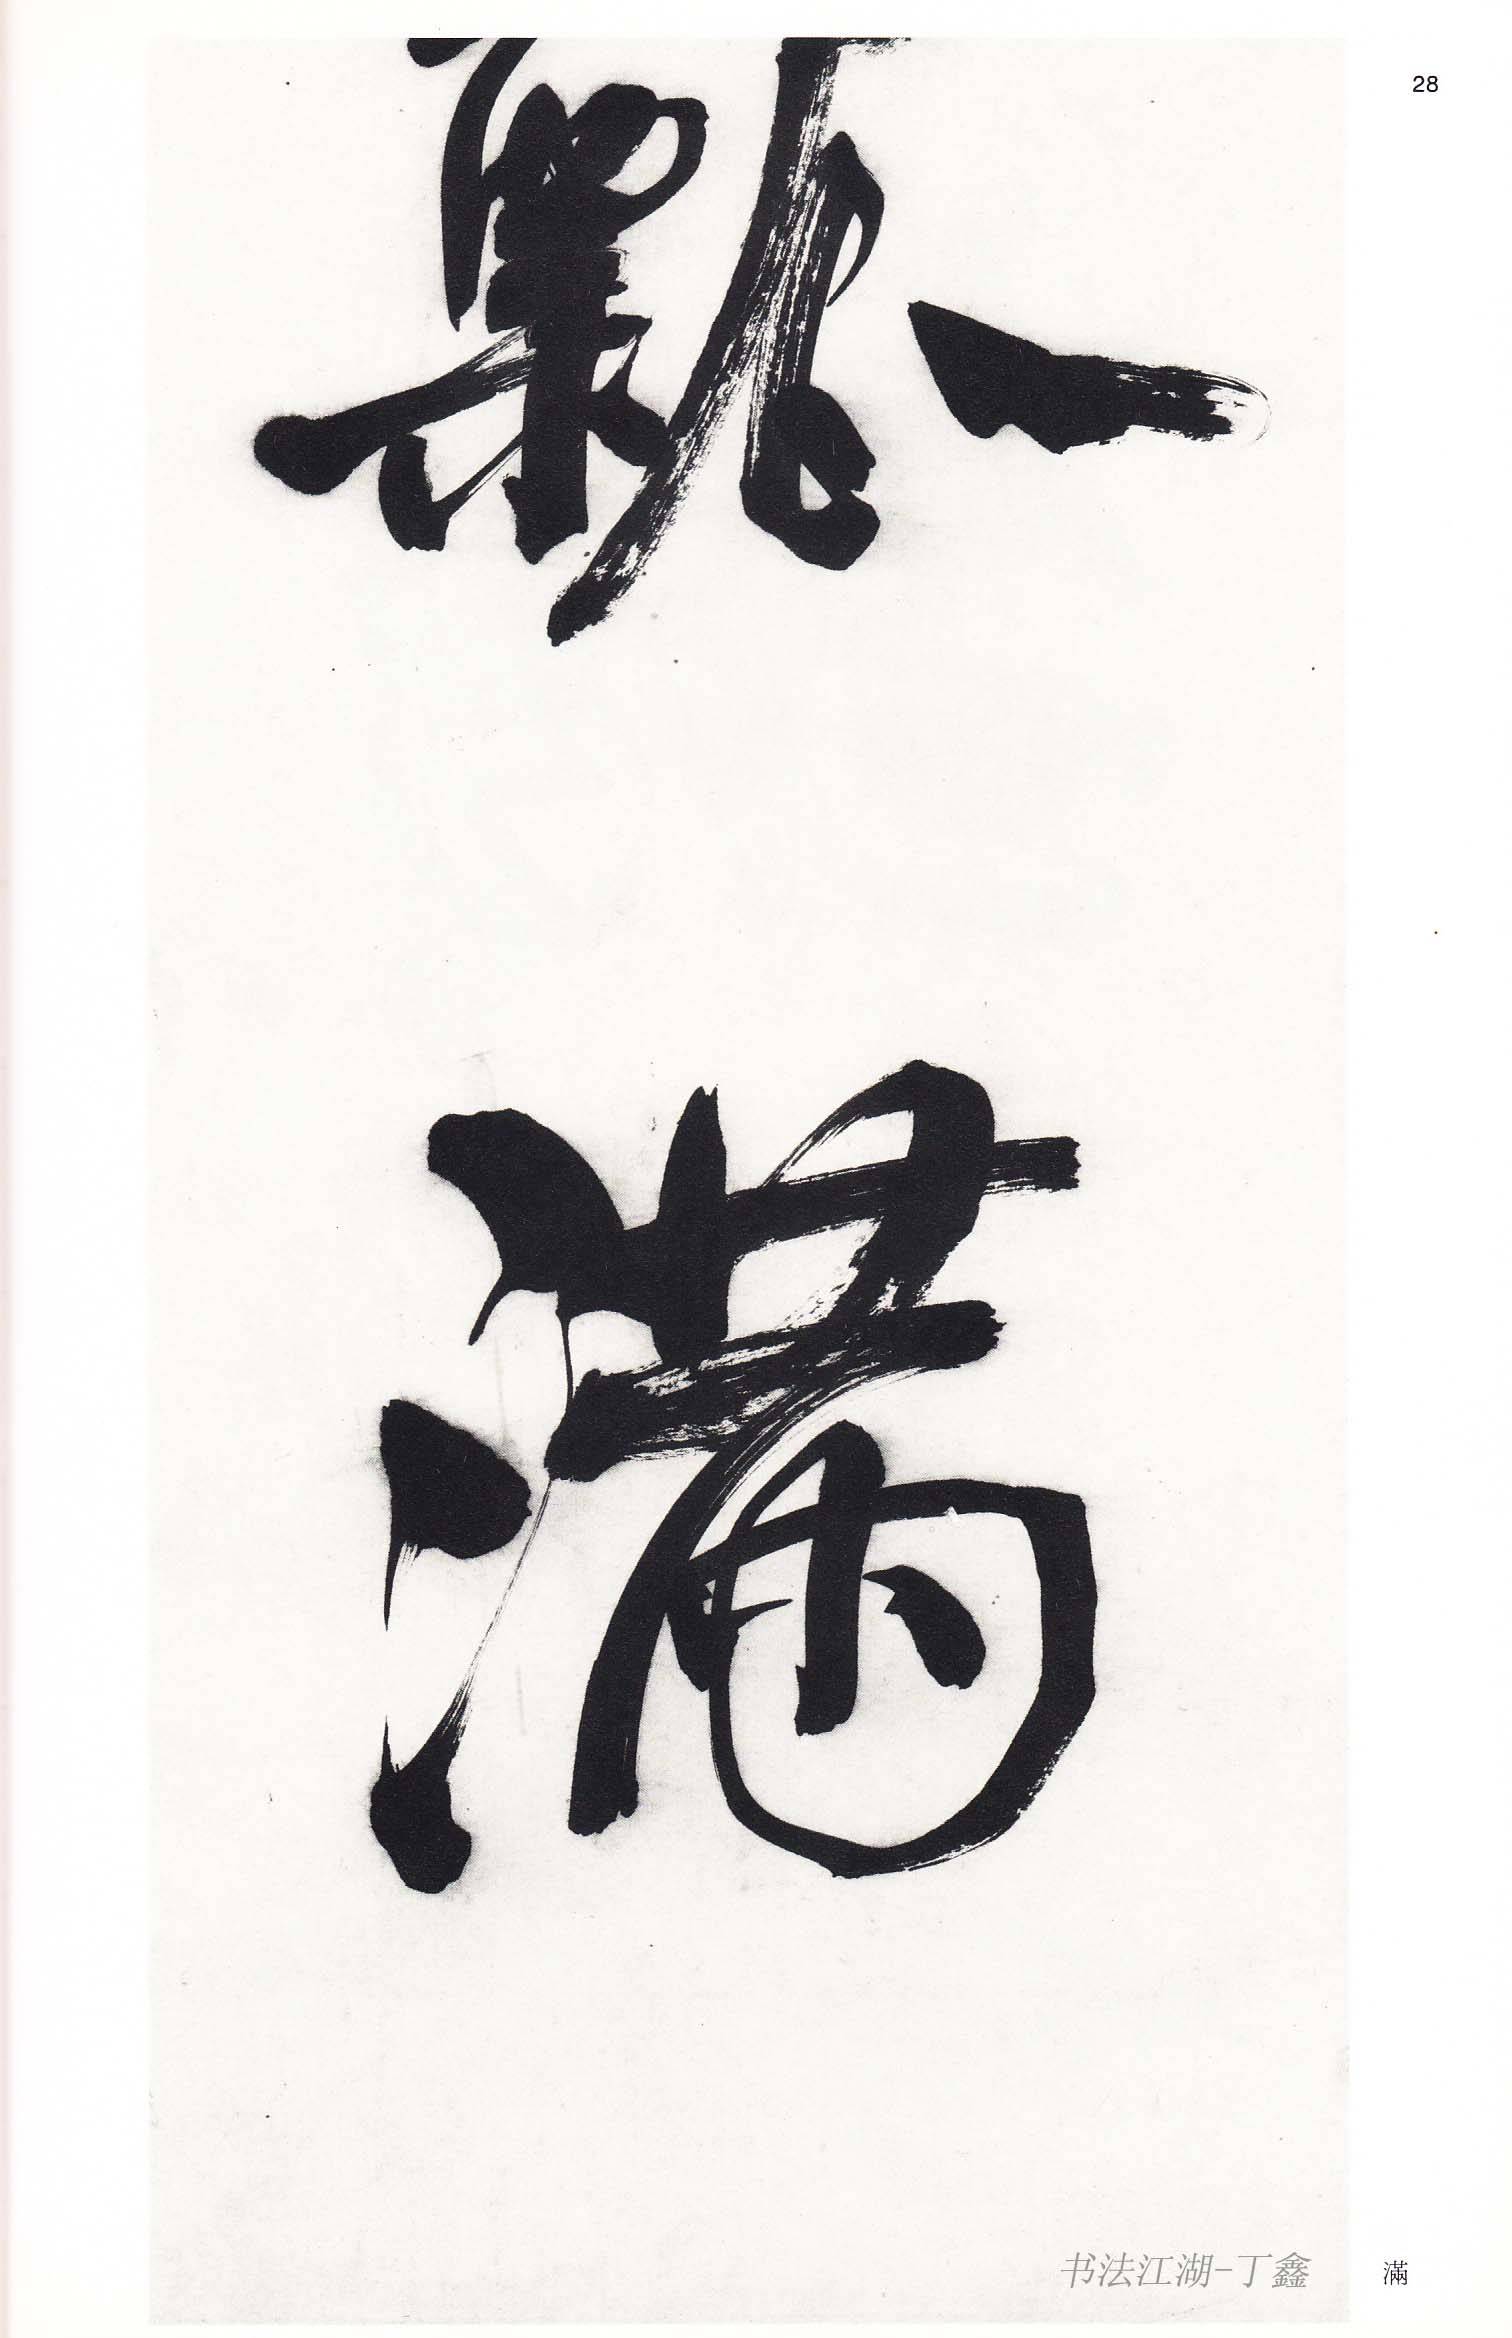 28
滿
书法江湖-丁鑫
滿